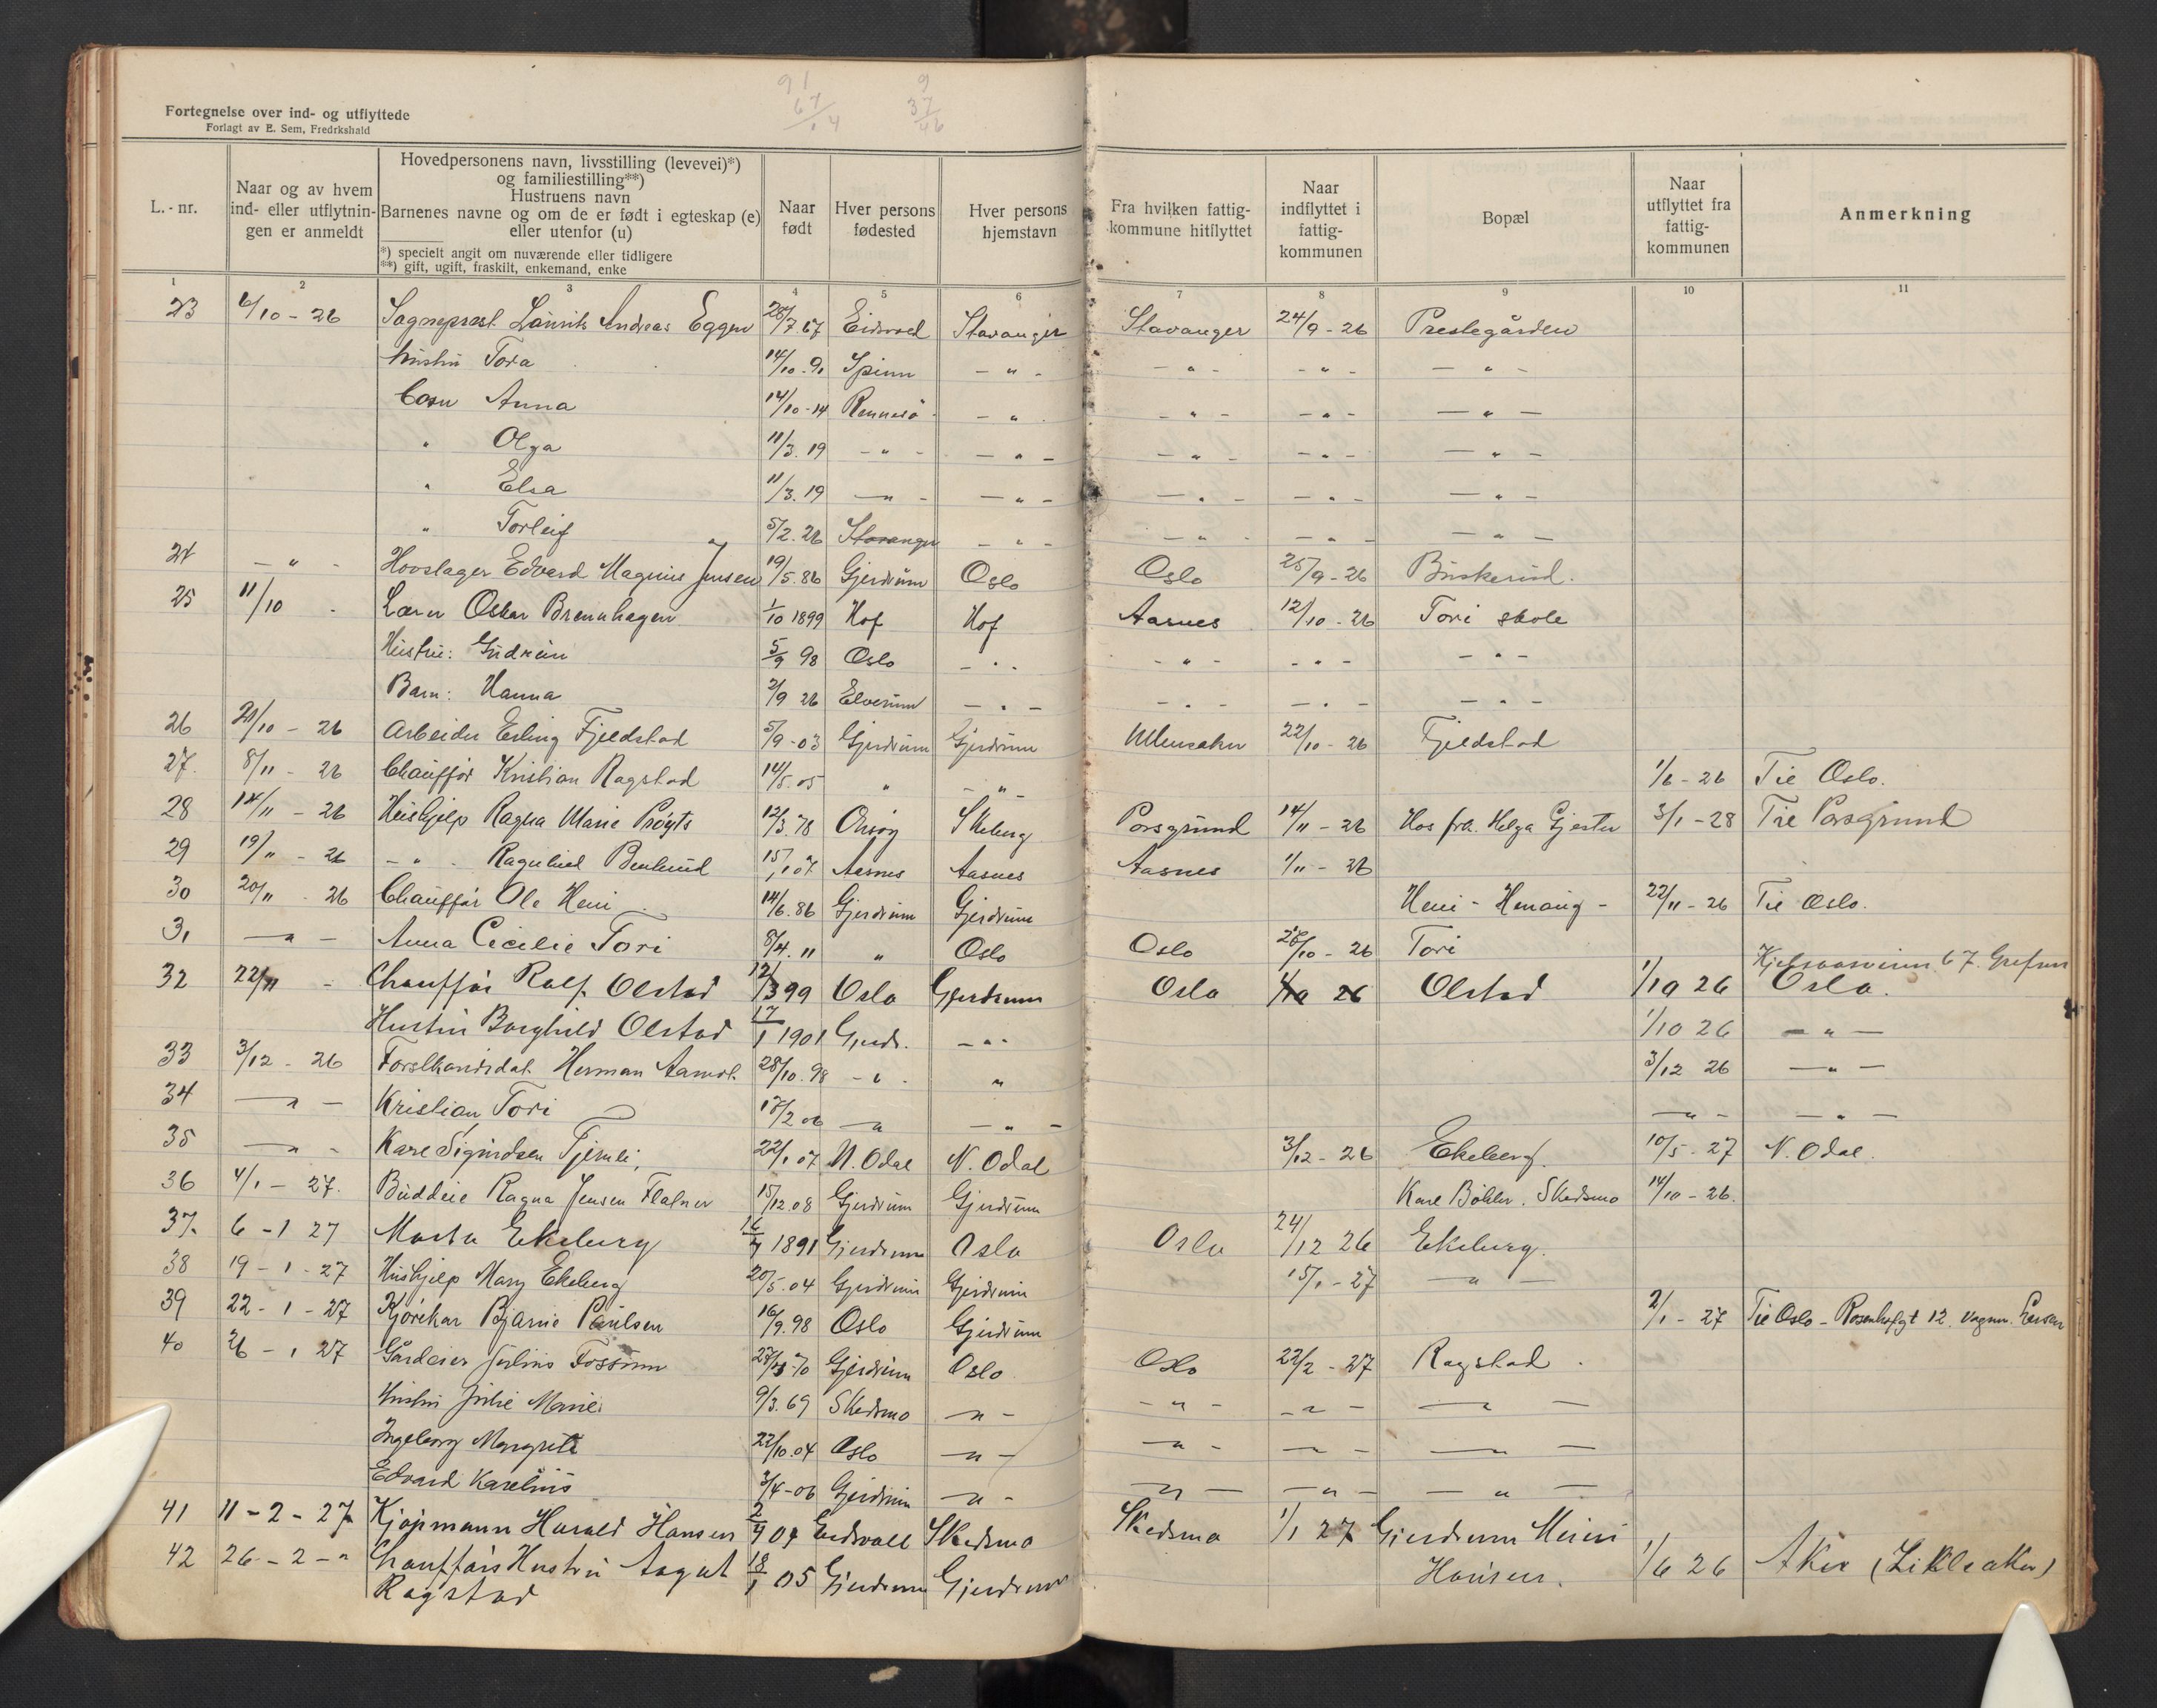 Fortegnelse over ind- og utflyttede
Forlagt av E. Sem, Fredrkshald
91 67 9 37 46
L.-nr. Naar og av hvem ind- eller utflytningen er anmeldt Hovedpersonens navn, livsstilling (levevei)*) og familiestilling**) Hustruens navn Barnenes navne og om de er født i egteskap (e) eller utenfor (u) *) specielt angit om nuværende eller tidligere **) gift, ugift, fraskilt, enkemand, enke Naar født Hver persons fødested Hver persons hjemstavn Fra hvilken fattigkommune hitflyttet Naar indflyttet i fattigkommunen Bopæl Naar utflyttet fra fattigkommunen Anmerkning
1 2 3 4 5 6 7 8 9 10 11
23 6/10 - 26 Sogneprest Laurits Andreas Eggen 28/7 67 Eidsvoll Stavanger Stavanger 24/9 - 26 Prestegården
Hustru Tora 14/10 - 91 Spinn - " - - " - - " - - " -
Barn Anna 14/10 - 14 Rennesö - " - " - - " - - " -
" Olga 11/3. 19 - " - - " - - " - - " - - " -
" Elsa 11/3. 19 - " - - " - - " - - " - - " -
" Torleif 5/2. 26 Stavanger - " - - " - - " - - " -
24 - " - Hovslager Edvard Magnus Jensen 19/5. 86 Gjerdrum Oslo Oslo 25/9 - 26 Buskerud.
25 11/10 - Lærer Oskar Brennhagen 1/10 1899 Hof Hof Aasnes 12/10 - 26 Tori skole
Hustru: Gudrun 5/9 98 Oslo - " - - " - - " - - " -
Barn: Hanna 2/9 26 Elverum - " - - " - - " - - " -
26 21/10 - 26 Arbeider Erling Fjeldstad 5/9 - 03 Gjerdrum Gjerdrum Ullensaker 22/10 - 26 Fjeldstad
27. 8/11 - 26 Chauffør Kristian Ragstad 14/5. 05 " - " - 1/6 - 26 Til Oslo.
28 14/11 - 26 Hushjelp Ragna Marie Prøyts 12/3. 78 Onsøy Skeberg Porsgrund 14/11 - 26 Hos frk. Helga Gjester 3/1 - 28 Til Porsgrund
29 19/11 - 26 - " - Ragnhild Berlund 15/1 07 Aasnes Aasnes Aasnes 1/11 - 26
30 20/11 - 26 Chauffør Ole Heni 14/6. 86 Gjerdrum Gjerdrum Heni - Henaug - 22/11 - 26 Til Oslo.
31 - " - Anna Cecilie Tori 8/4. 11 " Oslo Oslo 26/10 - 26 Tori
32 22/11 - Chauffør Rolf Olstad 12/3 99 Oslo Gjerdrum Oslo 26 Olstad 1/10 26 Kjelsaasveien 67. Grefsen Oslo.
Hustru Borghild Olstad 17/1 1901 Gjerdr. - " - 1/10 26 - " -
33 3/12 - 26 Forstkandidat Herman Aamodt 28/10. 98 - " - " 3/12 26 - " -
34 - " - Kristian Tori 17/2 06 - " - " - - " - - " -
35 - " - Kare Sigurdsen Tjernli, 22/1 07 N. Odal N. Odal 3/12 - 26 Ekeberg. 10/5 - 27 N. Odal.
36 4/1 - 27. Buddeie Ragna Jensen Flatner 15/12. 08 Gjerdrum Gjerdrum Karl Böhler. Skedsmo 14/10 - 26.
37. 6 - 1 27 Marta Ekeberg 16/7 1891 Gjerdrum Oslo Oslo 24/12 26 Ekeberg.
38 19 - 1 - 27 Hushjelp Mary Ekeberg 20/5. 04 Gjerdrum Gjerdrum 15/1 - 27 - " -
39 22 - 1 - 27 Kjørekar Bjarne Paulsen 16/9. 98 Oslo Gjerdrum 2/1 - 27 Til Oslo - Rosenhofgt 12. Vognm. Larsen
40 26 - 1 27 Gardeier Julius Fossum 28/3 - 70 Gjerdrum Oslo Oslo 22/2 - 27 Ragstad.
Hustru Julie Marie. 9/3. 69 Skedsmo - " - - " - - " - - " -
Ingeborg Margrete 22/10. 04 Oslo - " - - " - - " - - " -
Edvard Karelius 3/4 - 06 Gjerdrum - " - - " - - " - - " -
41 11 - 2 - 27 Kjøpmann Harald Hansen 2/9 04 Eidsvoll Skedsmo Skedsmo 1/1 27 Gjerdrum Meieri
Hansen.
42 26 - 2 - " Chauffør Hustru Aagot 18/1 05 Gjerdrum Gjerdrum 1/6 26 Aker (Lilleaker)
Ragstad